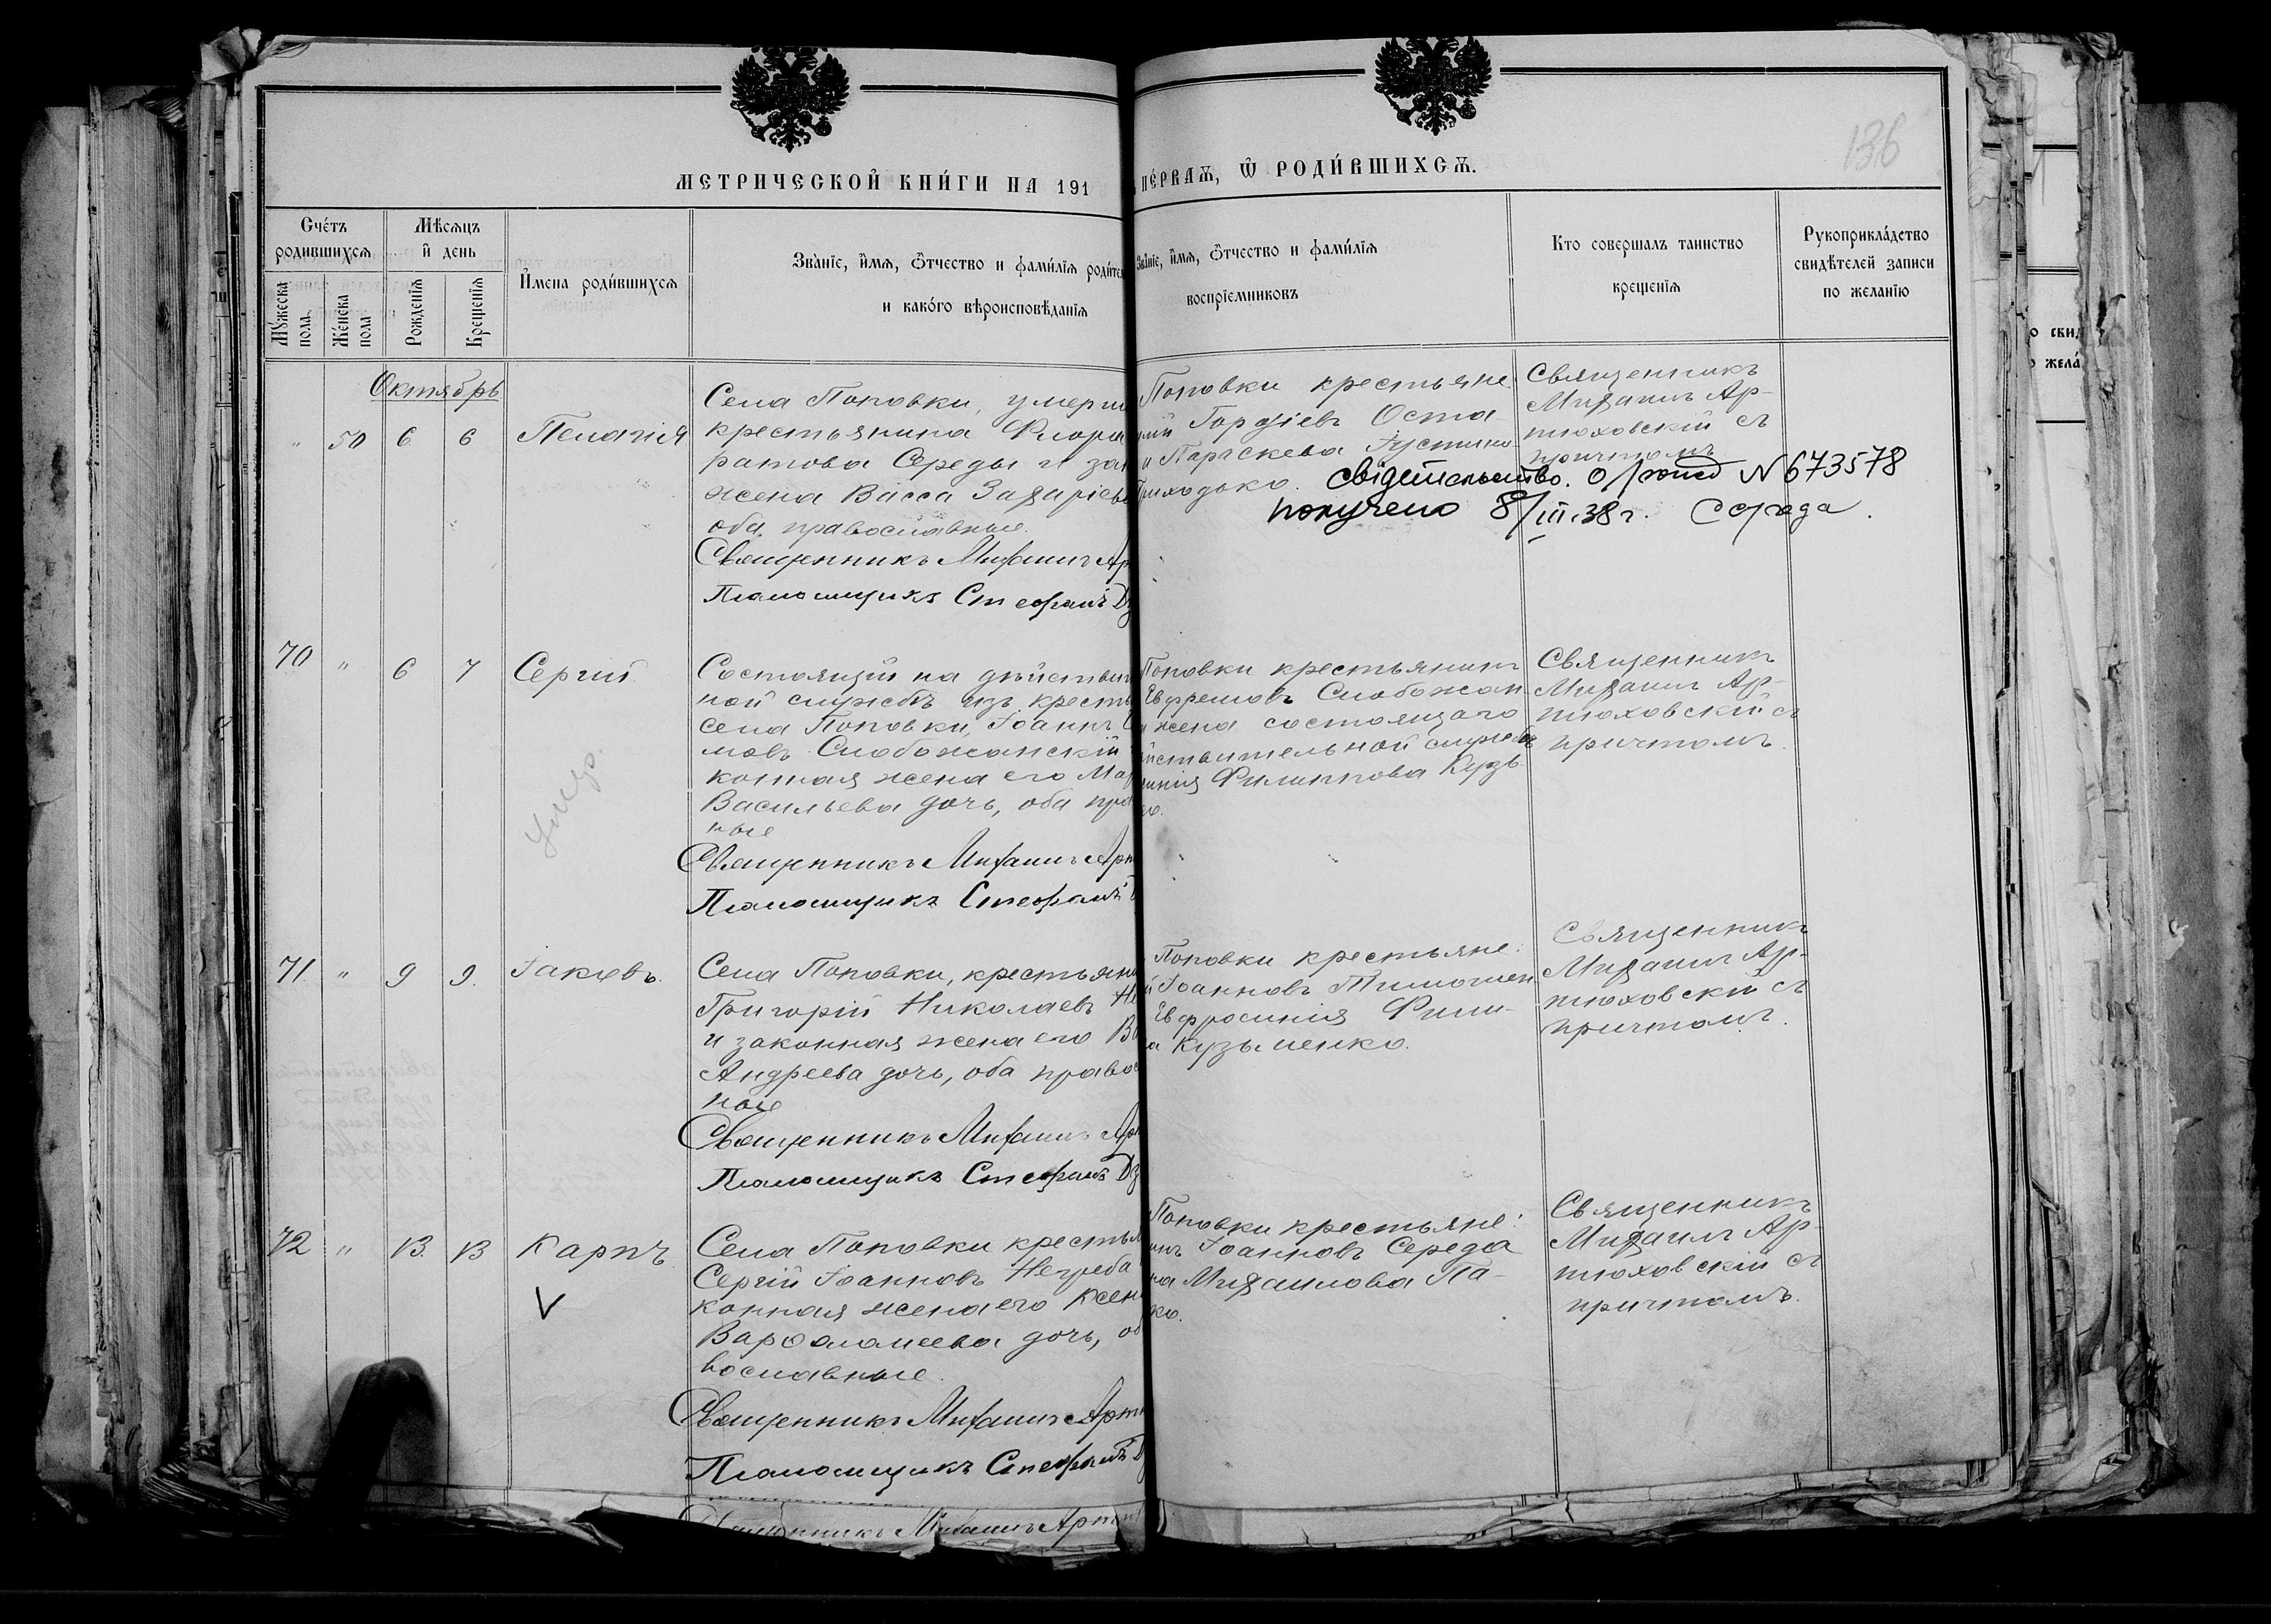 136
МЕТРИЧЕСКОЙ КНИ́ГИ НА 191
ПЕ́РВАѦ, Ѿ РОДИ́ВШИХСѦ.
Сче́тъ родившихсѧ
Мѣсѧцъ и день
Му́жеска пола.
Же́нска пола
Рожденїѧ
Крещенїѧ
И҆мена роди́вшихсѧ
Зва́нїе, и҆мѧ, ѻ҆тчество и фами́лїѧ
и како́го вѣроисповѣданїѧ
Зва́нїе, и҆мѧ, ѻ҆тчество и фами́лїѧ
воспрїемниковъ
Кто совершалъ таинство
крещенїѧ
Рукоприкла́дство
свидѣтелей записи
по желанїю
Октябрь
" 50 6 6 Пелагія
Села Поповки, умерш
крестьянина Флора
ратова Середы и зак
жена Васса Захаріева
оба православные.
Священникъ Михаилъ Ар
Псаломщикъ Стефанъ Дз
Поповки крестьяне:
Гордіевъ Оста-
и Параскева Іустино
Приходько.
Священникъ
Михаилъ Ар-
тюховскій съ
причтомъ
свідетельство о рожд N 673578
получено 8/III.38 г. Середа.
70 " 6 7 Сергій
Умер.
Состоящій на дѣйствит
ной службѣ изъ кресть
села Поповки, Іоаннъ
мовъ Слобожанскій
конная жена его Мар
Васильева дочь, оба пра
ные
Священникъ Михаилъ Арт
Псаломщикъ Стефанъ
Поповки крестьянинъ
Евфремовъ Слобожан
жена состоящаго
йствительной службѣ
Филиппова Кузь-
Священникъ
Михаилъ Ар-
тюховскій съ
причтомъ.
71 " 9 9. Іаковъ.
Села Поповки, крестьяни
Григорій Николаевъ
и законная жена его
Андреева дочь, оба правос
ные
Священникъ Михаилъ Арт
Псаломщикъ Стефанъ Дз
Поповки крестьяне:
Іоанновъ Тимошен
Евфросинія Фили-
а Кузьменко.
Священникъ
Михаилъ Ар-
тюховскій съ
причтомъ.
72 " 13 13 Карпъ
V
Села Поповки крестья
Сергій Іоанновъ Негреба
конная жена его Ксен
Варѳоломеева дочь, об
вославные.
Священникъ Михаилъ Артю
Псаломщикъ Стефанъ Д
Поповки крестьяне:
Іоанновъ Середа
на Михаилова Па-
ко.
Священникъ
Михаилъ Ар-
тюховскій съ
причтомъ.
Священникъ Михаилъ Артю